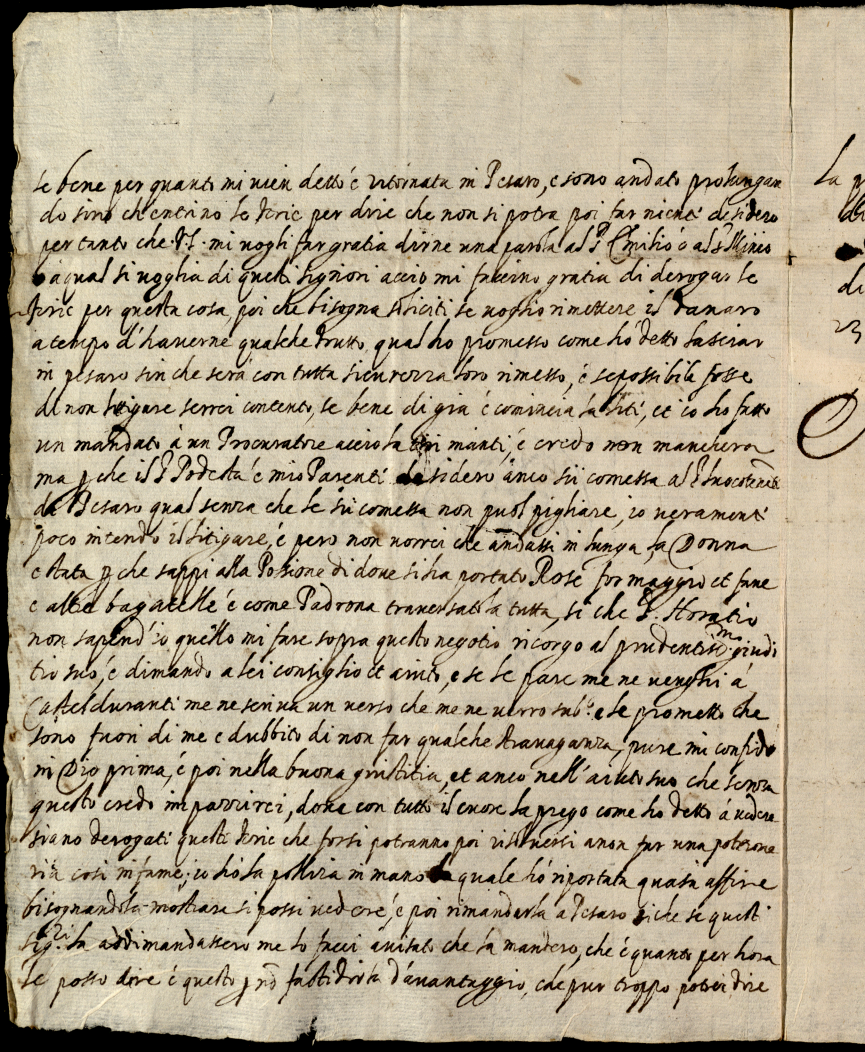 se bene per quanto mi vien detto è ritornata in Pesaro, e sono andato prolungan
do sino ch'entrino le ferie per dire che non si potra poi far niente desidero
per tanto che V.S. mi vogli far gratia dirne una parola al S.r Emilio ò al S.r
ò à qual si voglia di questi signori accio mi faccino gratia di derogar le
ferie per questa cosa, poi che bisogna soliciti, se voglio rimettere il danaro
a tempo d'haverne qualche frutto, qual ho promesso come hò detto lasciar
in pesaro sin che serà con tutta sicurezza loro rimesso, e se possibile fosse
di non litigare serrei contento, se bene di già è comincià la liti, et io ho fatto
un mandato à un Procuratore accio la mi manti, è credo non mancherà
ma p che il S.r Podestà è mio Parenti desidero anco sii comessa al S.r luocotenẽte
da Pesaro qual senza che le sii comessa non puol pigliare, io veramente
poco intendo il litigare, è pero non vorrei che andassi in lunga, la Donna
è stata p che sappi alla Possione di dove si ha portato Rose formaggio et fune
e altre bagatelle è come Padrona traversatola tutta, si che S.r Horatio
non sapend'io quello mi fare sopra questo negotio ricorgo al prudentiss.mo giudi
tio suo, è dimando a lei consiglio et aiuto, e se le pare me ne venghi à
Castelduranti me ne scriva un verso che me ne verro sub.o e le prometto che
sono fuori di me e dubbito di non far qualche stravaganza, pure mi confido
in Dio prima, è poi nella buona giustitia, et anco nell'aiuto suo che senza
questo credo impazzirei, dove con tutto il cuore la prego come ho detto à vedere
siano derogati questi ferie che forsi potranno poi risolversi a non far una poltrone
ria così infame, io hò la polizza in mano la quale hò riportata quà a affine
bisognandola mostrare si possi vedere, è poi rimandarla a Pesaro siche se questi
sig.ri la addimandassero me lo facci avisato che la manderò, che è quanto per hora
le posso dire è questo p nõ fastidirla d'avantaggio, che pur troppo potrei dire
La
di
di
23